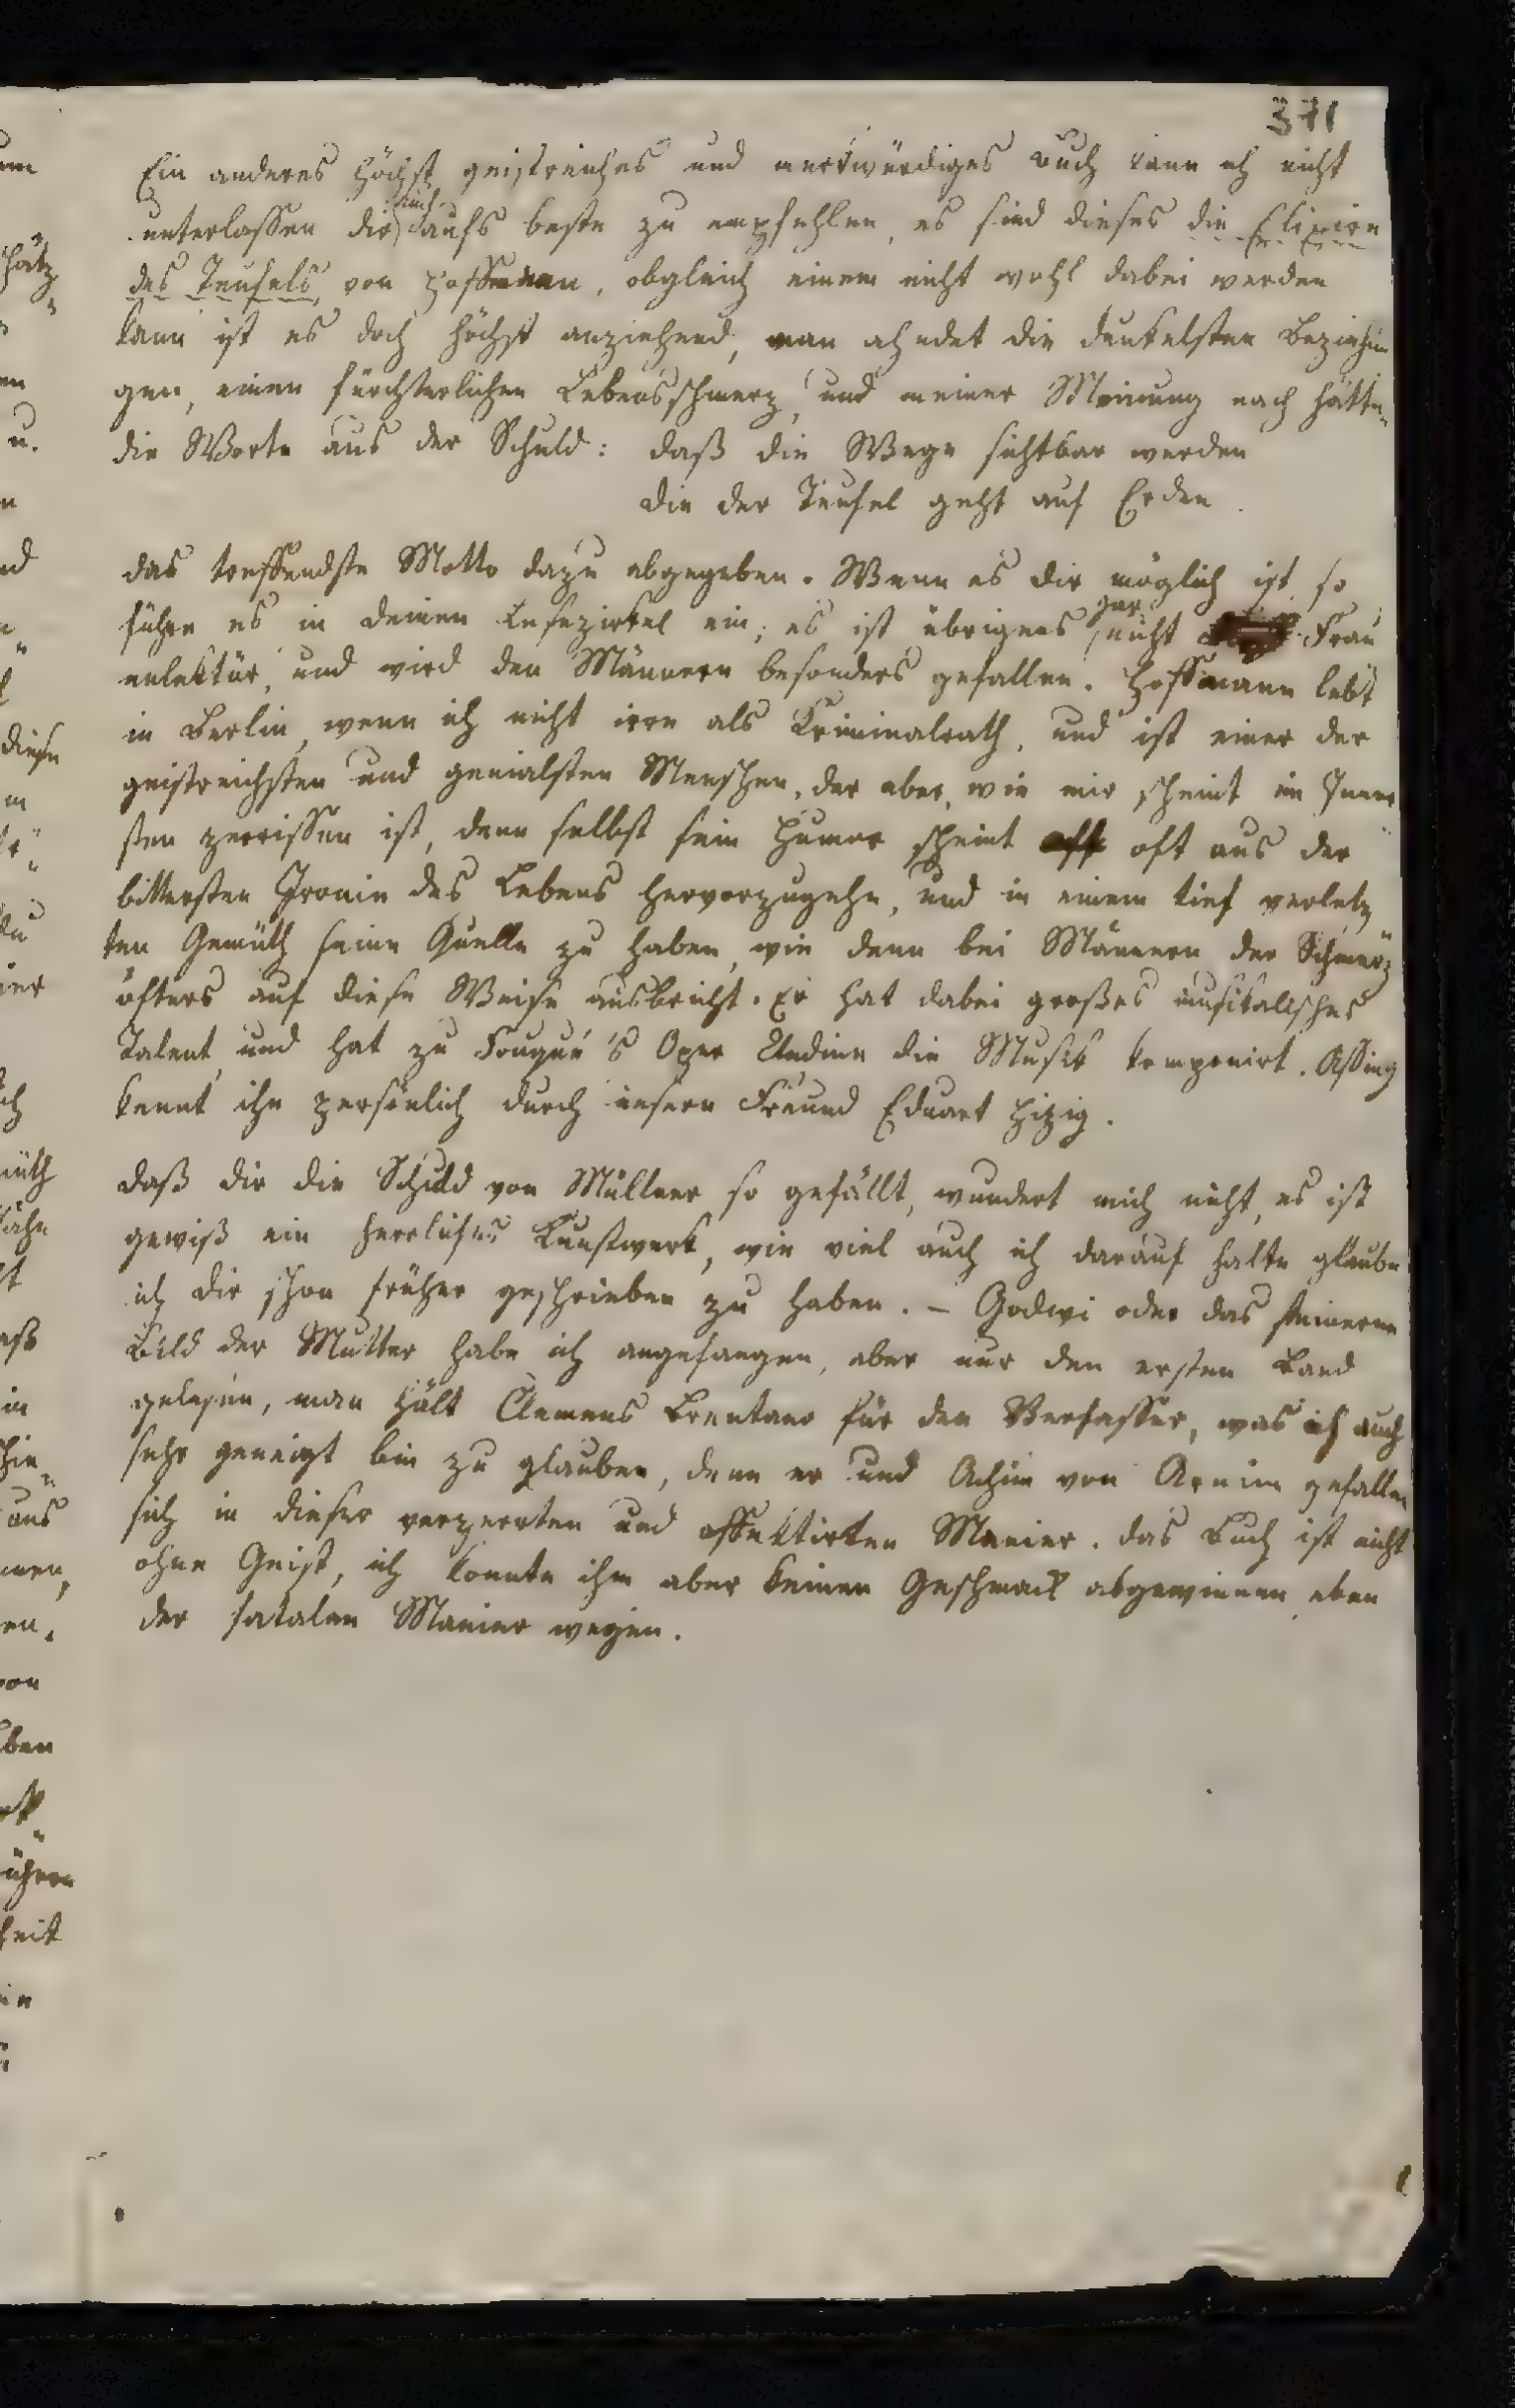 371
Ein anderes höchst geistreiches und merkwürdiges Buch kann ich nicht
unterlassen dir auch aufs beste zu empfehlen, es sind dieses die Elixire
des Teufels, von Hoffmann, obgleich einem nicht wohl dabei werden
kann ist es doch höchst anziehend, man ahndet die dunkelsten Beziehun
gen, einen fürchterlichen Lebensschmerz, und meiner Meinung nach hätten
die Worte aus der Schuld: daß die Wege sichtbar werden
die der Teufel geht auf Erden.
das treffendste Motto dazu abgegeben. Wenn es dir möglich ist, so
führe es in deinen Lesezirkel ein; es ist übrigens gar nicht Frau
enlektür, und wird den Männern besonders gefallen. Hoffmann lebt
in Berlin, wenn ich nicht irre als Kriminalrath, und ist einer der
geistreichsten und genialsten Menschen, der aber, wie mir scheint im Inner
sten zerrissen ist, denn selbst sein Humor scheint oft aus der
bittersten Ironie des Lebens hervorzugehn, und in einem tief verletz
ten Gemüth seine Quelle zu haben, wie denn bei Männern der Schmerz
öfters auf diese Weise ausbricht. Er hat dabei großes musikalisches
Talent, und hat zu Fouqué's Oper Undine die Musik komponirt. Assing
kennt ihn persönlich durch unsern Freund Eduart Hizig.
daß dir die Schuld von Müllner so gefällt, wundert mich nicht, es ist
gewiß ein herrliches Kunstwerk, wie viel auch ich darauf halte glaube
ich dir schon früher geschrieben zu haben. – Godwi oder das steinerne
Bild der Mutter habe ich angefangen, aber nur den ersten Band
gelesen, man hält Clemens Brentano für den Verfasser, was ich auch
sehr geneigt bin zu glauben, denn er und Achim von Arnim gefallen
sich in dieser verzerrten und affektirten Manier. das Buch ist nicht
ohne Geist, ich konnte ihm aber keinen Geschmack abgewinnen eben
der fatalen Manier wegen.